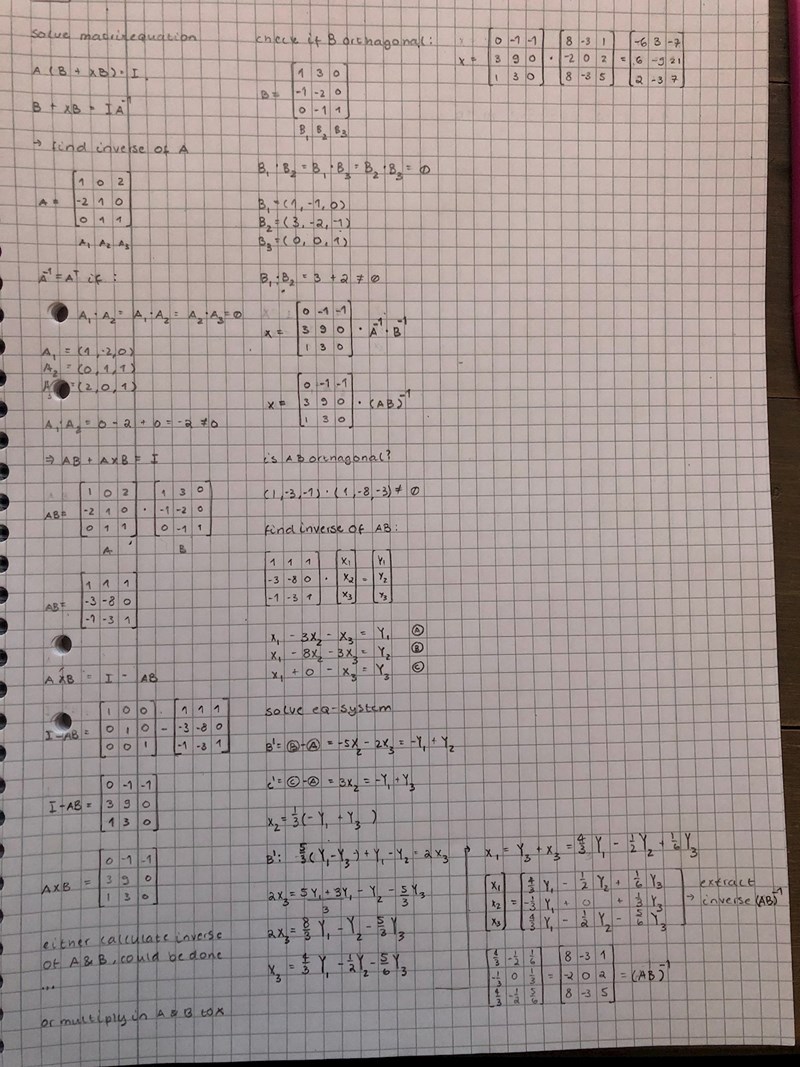 solve matrixequation
A(B + XB) = I
B + XB = I A⁻¹
→ find inverse of A
A = [1 0 2
-2 1 0
0 1 1]
A₁ A₂ A₃
A⁻¹ = Aᵀ if :
A₁·A₂ = A₁·A₂ = A₂·A₃ = 0
A₁ = (1,-2,0)
A₂ = (0,1,1)
A₃ = (2,0,1)
A₁·A₂ = 0 - 2 + 0 = -2 ≠ 0
⇒ AB + AXB = I
AB = [1 0 2 · [1 3 0
-2 1 0 -1 -2 0
0 1 1] 0 -1 1]
A B
AB = [1 1 1
-3 -8 0
-1 -3 1]
AXB = I - AB
I-AB = [1 0 0 - [1 1 1
0 1 0 -3 -8 0
0 0 1] -1 -3 1]
I-AB = [0 -1 -1
3 9 0
1 3 0]
AXB = [0 -1 -1
3 9 0
1 3 0]
either calculate inverse
of A & B, could be done
...
or multiply in A & B to X
check if B orthagonal:
B = [1 3 0
-1 -2 0
0 -1 1]
B₁ B₂ B₃
B₁·B₂ = B₁·B₃ = B₂·B₃ = 0
B₁ = (1,-1,0)
B₂ = (3,-2,-1)
B₃ = (0,0,1)
B₁·B₂ = 3 + 2 ≠ 0
X = [0 -1 -1
3 9 0
1 3 0] · A⁻¹·B⁻¹
X = [0 -1 -1
3 9 0
1 3 0] · (AB)⁻¹
is AB orthagonal?
(1,-3,-1)·(1,-8,-3) ≠ 0
find inverse of AB:
[1 1 1 · [X₁ = [Y₁
-3 -8 0 X₂ Y₂
-1 -3 1] X₃] Y₃]
X₁ - 3X₂ - X₃ = Y₁ Ⓐ
X₁ - 8X₂ - 3X₃ = Y₂ Ⓑ
X₁ + 0 - X₃ = Y₃ Ⓒ
solve eq-system
B' = Ⓑ-Ⓐ = -5X₂ - 2X₃ = -Y₁ + Y₂
C' = Ⓒ-Ⓐ = 3X₂ = -Y₁ + Y₃
X₂ = 1/3(-Y₁ + Y₃)
B': 5/3(Y₁-Y₃) + Y₁ - Y₂ = 2X₃
2X₃ = (5Y₁ + 3Y₁)/3 - Y₂ - 5/3 Y₃
2X₃ = 8/3 Y₁ - Y₂ - 5/3 Y₃
X₃ = 4/3 Y₁ - 1/2 Y₂ - 5/6 Y₃
X = [0 -1 -1 · [8 -3 1 = [-6 3 -7
3 9 0 -2 0 2 6 -9 21
1 3 0] 8 -3 5] 2 -3 7]
X₁ = Y₃ + X₃ = 4/3 Y₁ - 1/2 Y₂ + 1/6 Y₃
[X₁ = [4/3 Y₁ - 1/2 Y₂ + 1/6 Y₃ extract
X₂ -1/3 Y₁ + 0 + 1/3 Y₃ → inverse (AB)⁻¹
X₃] 4/3 Y₁ - 1/2 Y₂ - 5/6 Y₃]
[4/3 -1/2 1/6 = [8 -3 1 = (AB)⁻¹
-1/3 0 1/3 -2 0 2
4/3 -1/2 5/6] 8 -3 5]